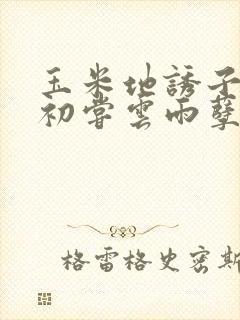 玉米地誘子
初嘗雲雨孽
格雷格史密斯